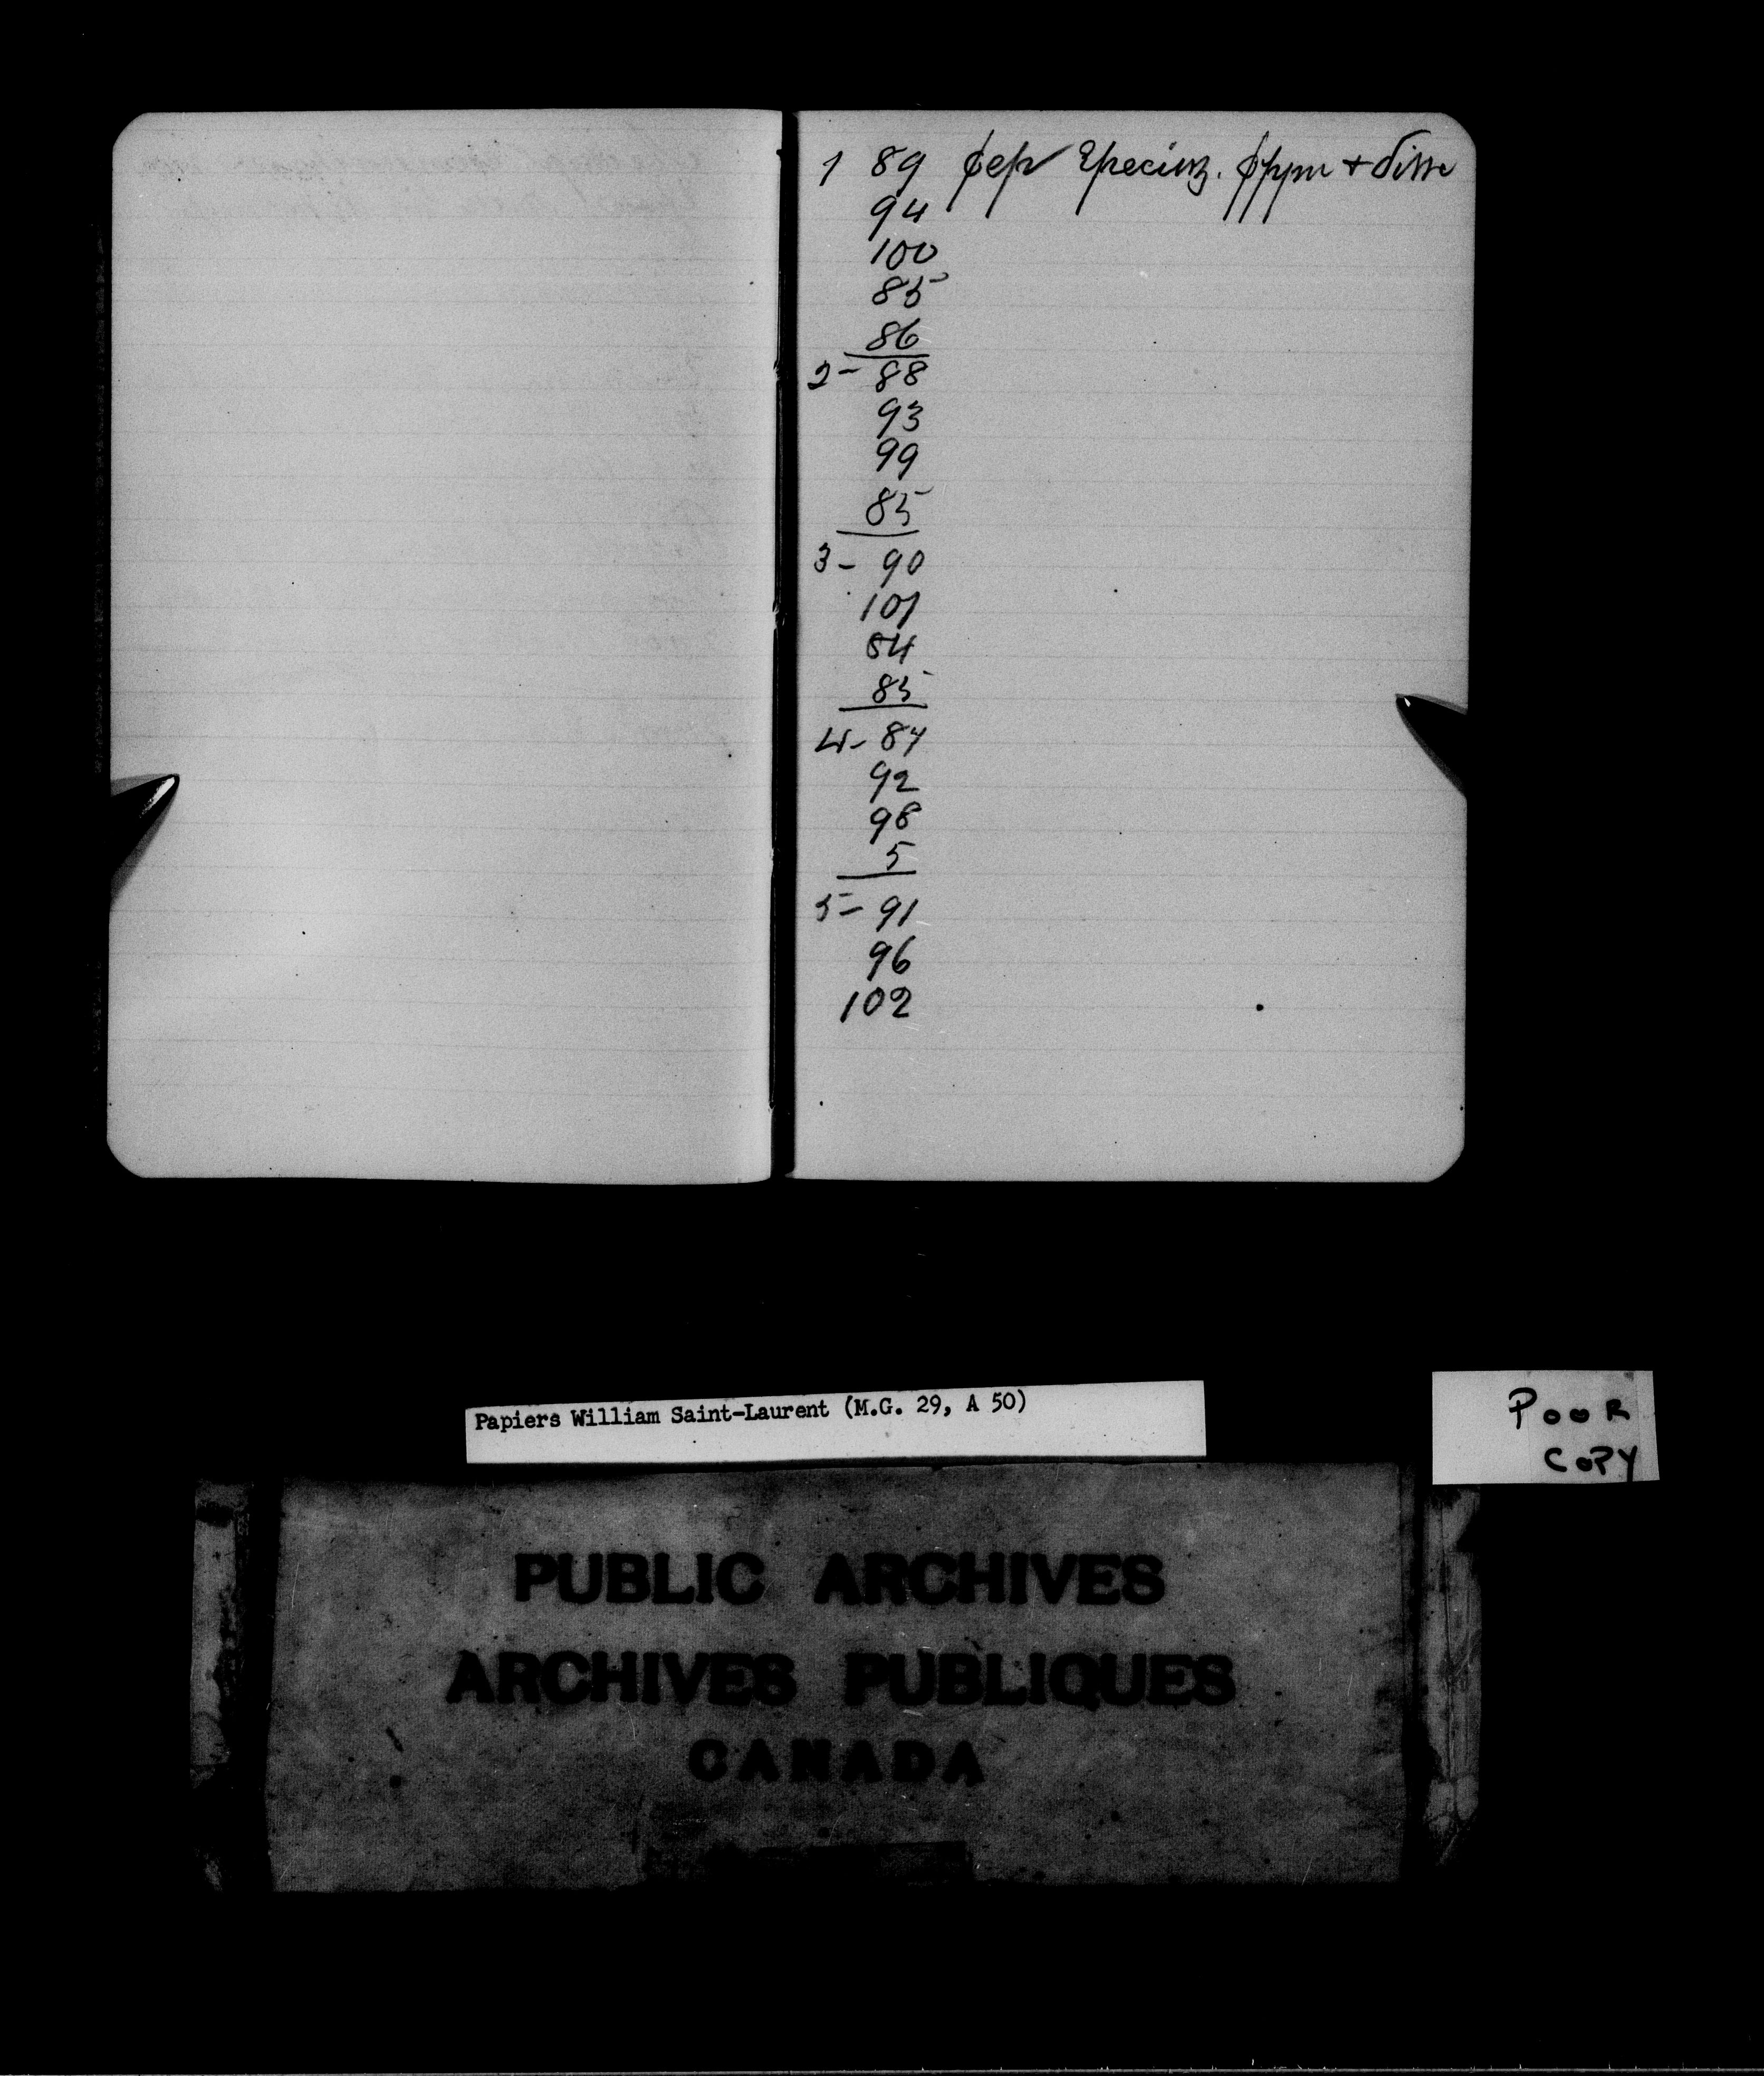 1 89
94
100
85
86
2 - 88
93
99
85
3 - 90
101
84
85
4 - 87
92
98
5
5 - 91
96
102
Papiers William Saint-Laurent (M.G. 29, A 50)
POOR
COPY
PUBLIC ARCHIVES
ARCHIVES PUBLIQUES
CANADA